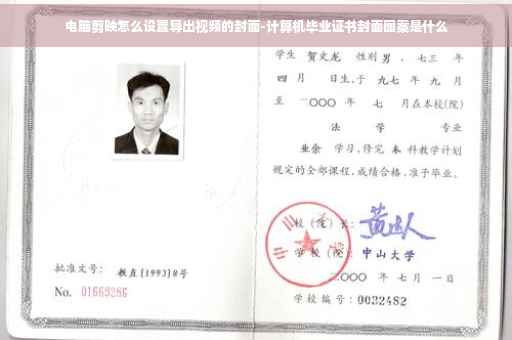 电脑剪映怎么设置导出视频的封面-计算机毕业证书封面图案是什么
学生 贺文龙 性别 男，七三 年
四月 日生，于 九七 年 九 月
至 二〇〇〇 年 七 月在本校(院)
法学 专业
业余 学习，修完 本 科教学计划
规定的全部课程，成绩合格，准予毕业。
校(院)长：
学校(院)：中山大学
二〇〇〇 年 七 月 一 日
学校编号：0032482
批准文号：教直(1993)8号
No. 01669286